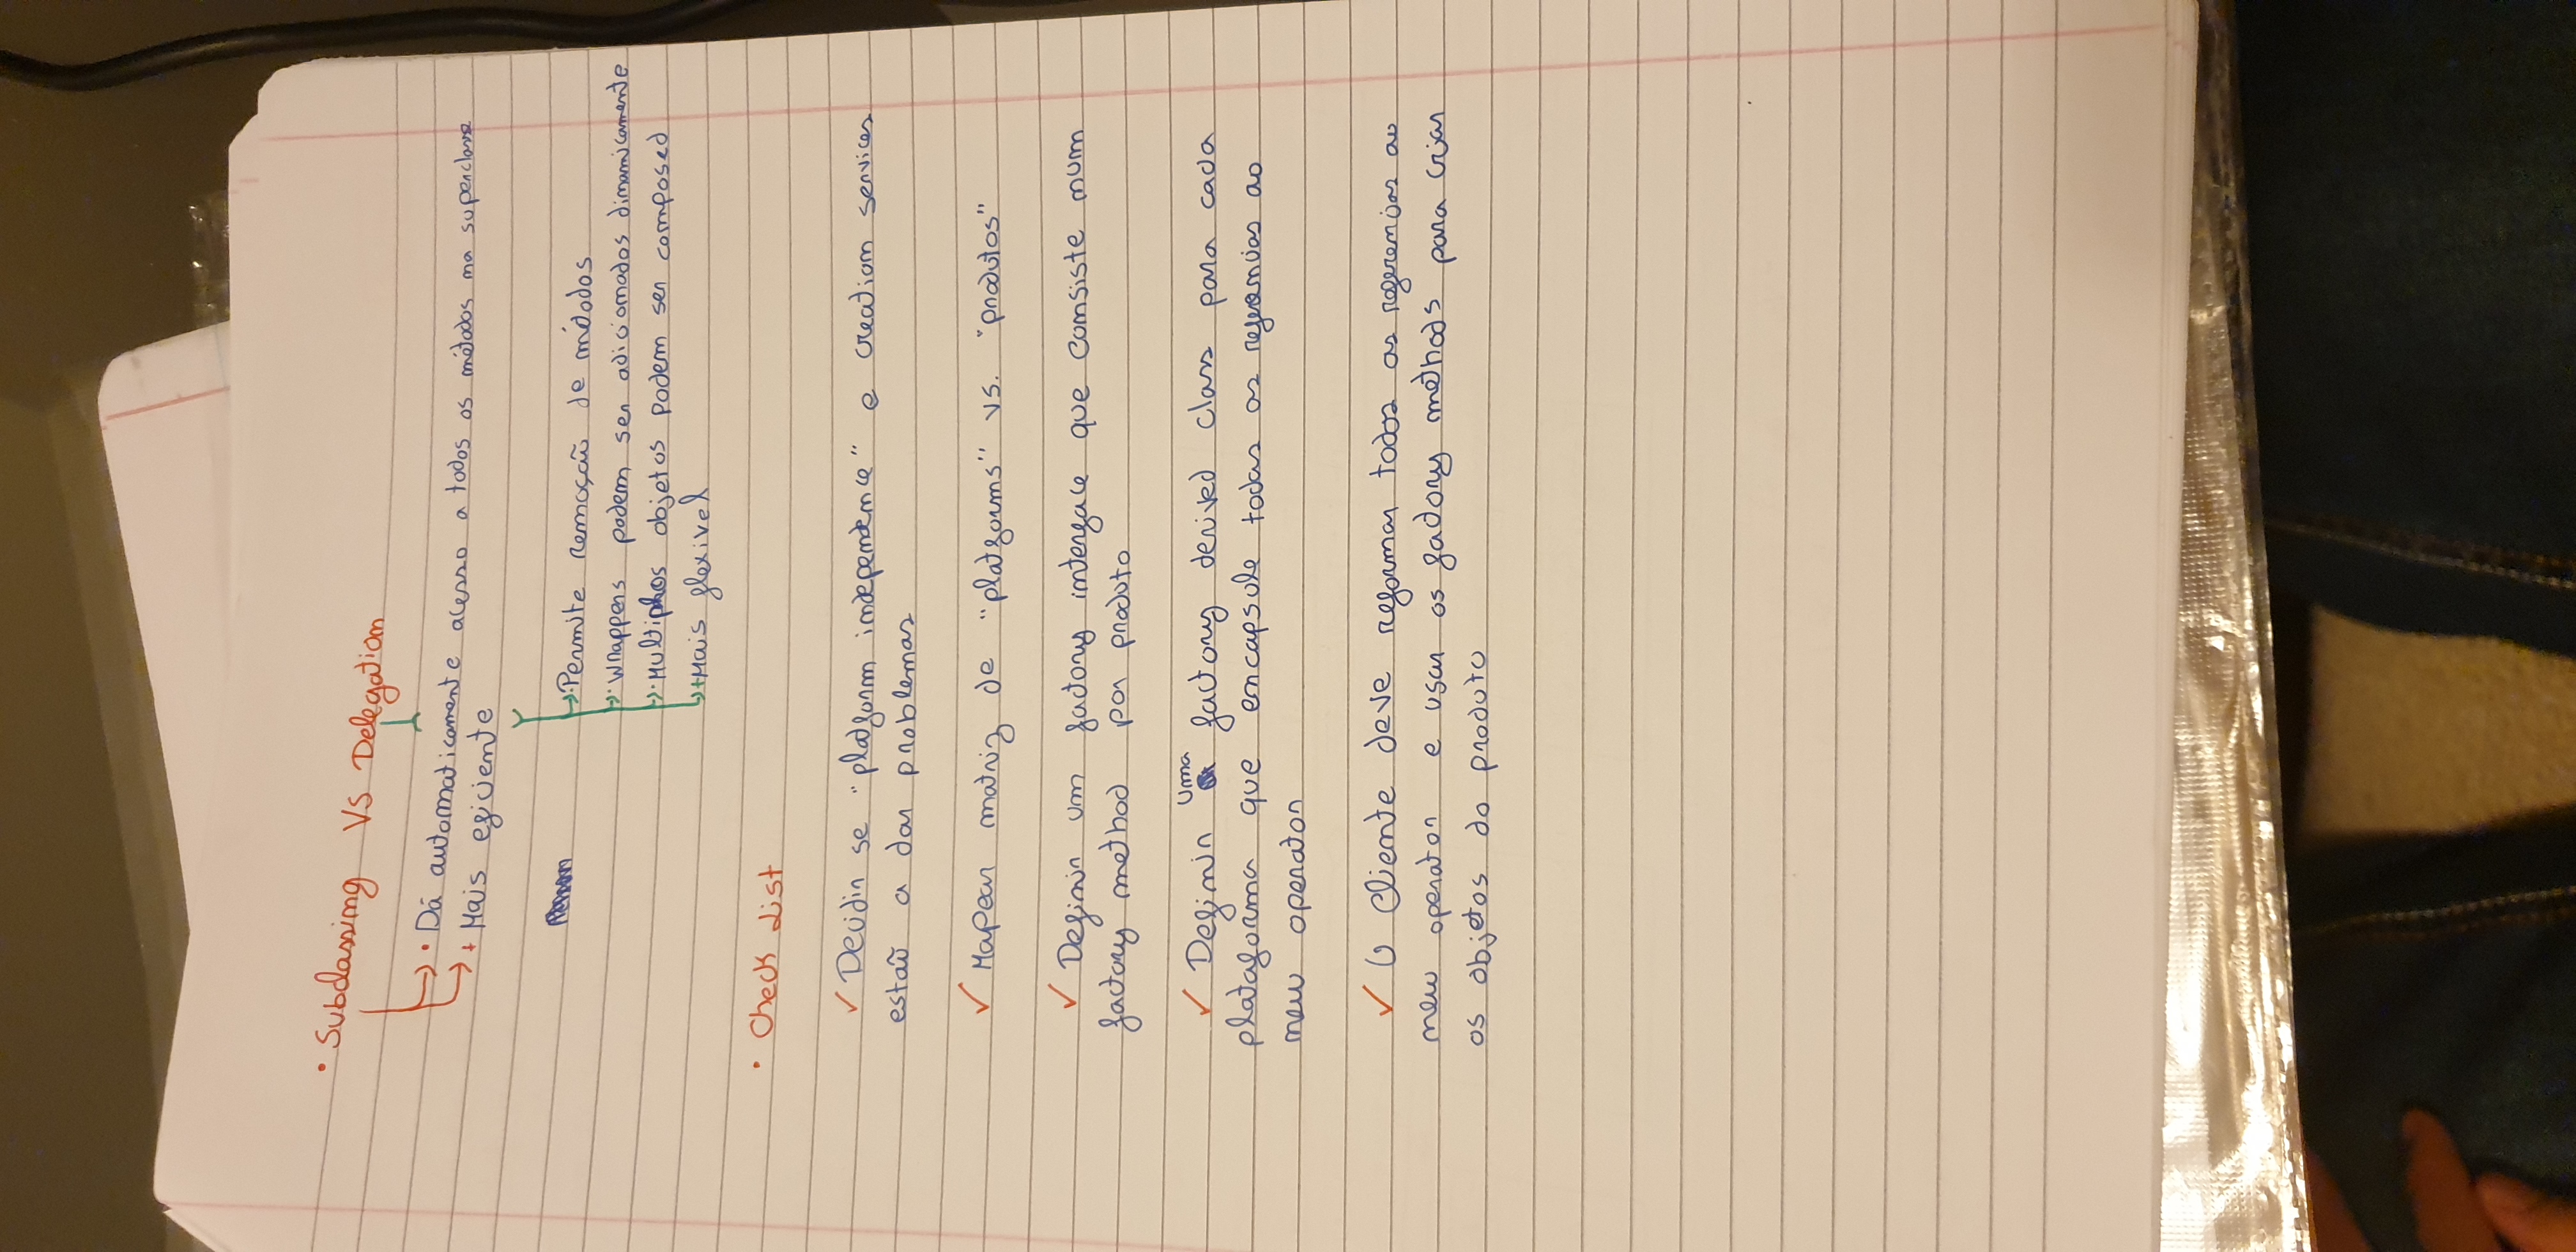 • Subclassing VS Delegation
→ • Dá automaticamente acesso a todos os métodos na superclasse
→ + Mais eficiente
→ • Permite remoção de métodos
→ • Wrappers podem ser adicionados dinamicamente
→ • Multiplos objetos podem ser composed
→ + Mais flexivel
• Check List
✓ Decidir se "platform independence" e creation services
estão a dar problemas
✓ Mapear matriz de "platforms" vs. "produtos"
✓ Definir um factory interface que consiste num
factory method por produto
✓ Definir uma factory derived class para cada
plataforma que encapsule todas as referencias ao
new operator
✓ O Cliente deve reformar todas as referencias ao
new operator e usar os factory methods para criar
os objetos do produto